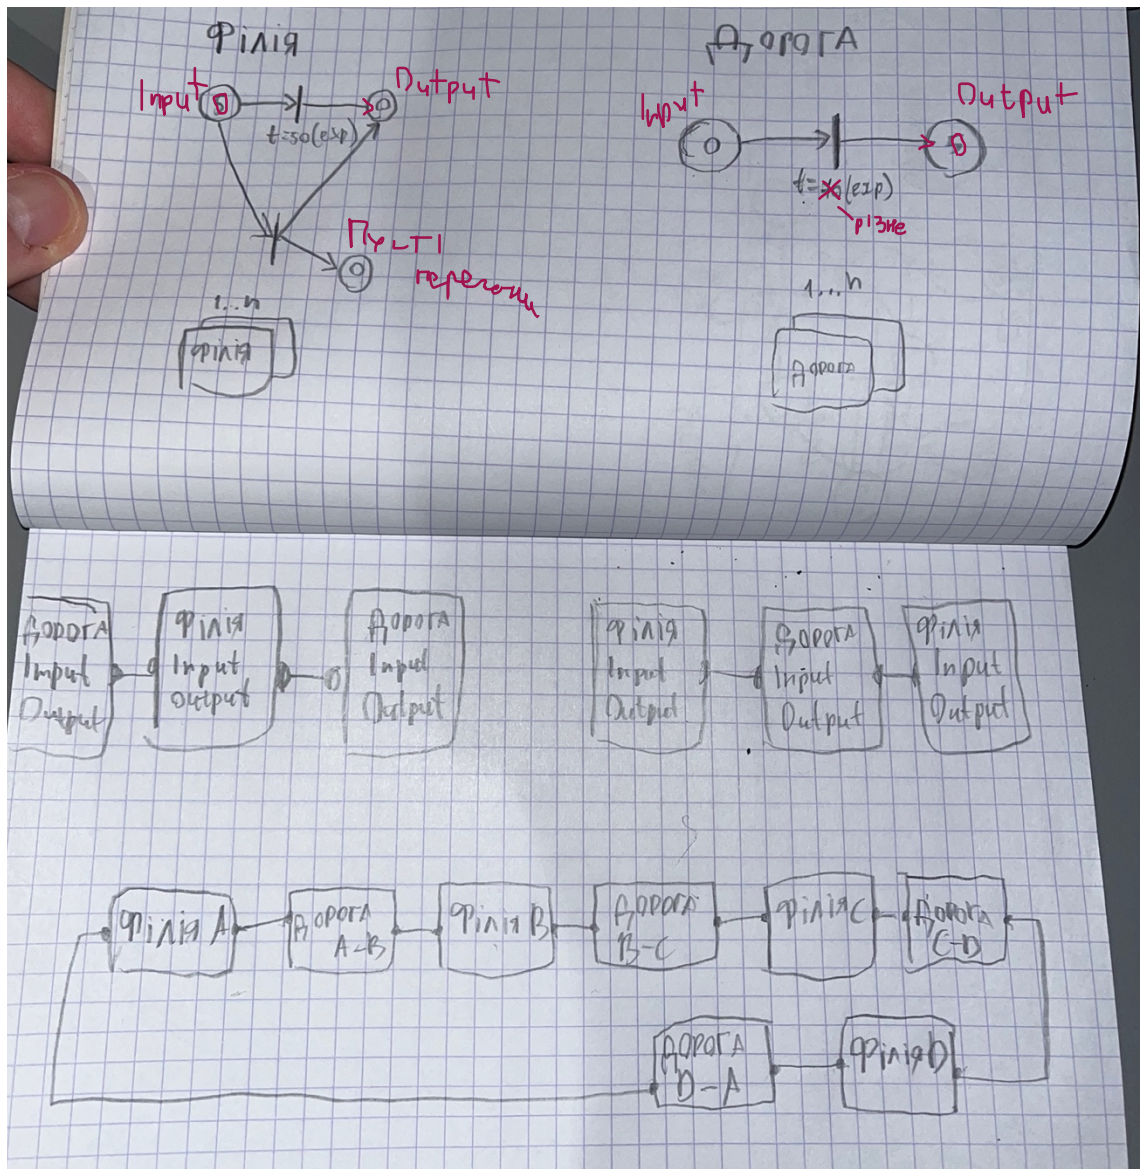 Філія
Дорога
Input
Output
t=50(exp)
Пусті
перегони
1...n
Філія
Input
Output
t= (exp)
різне
1...n
Дорога
Дорога
Input
Output
Філія
Input
Output
Дорога
Input
Output
Філія
Input
Output
Дорога
Input
Output
Філія
Input
Output
Філія A
Дорога
A-B
Філія B
Дорога
B-C
Філія C
Дорога
C-D
Дорога
D-A
Філія D